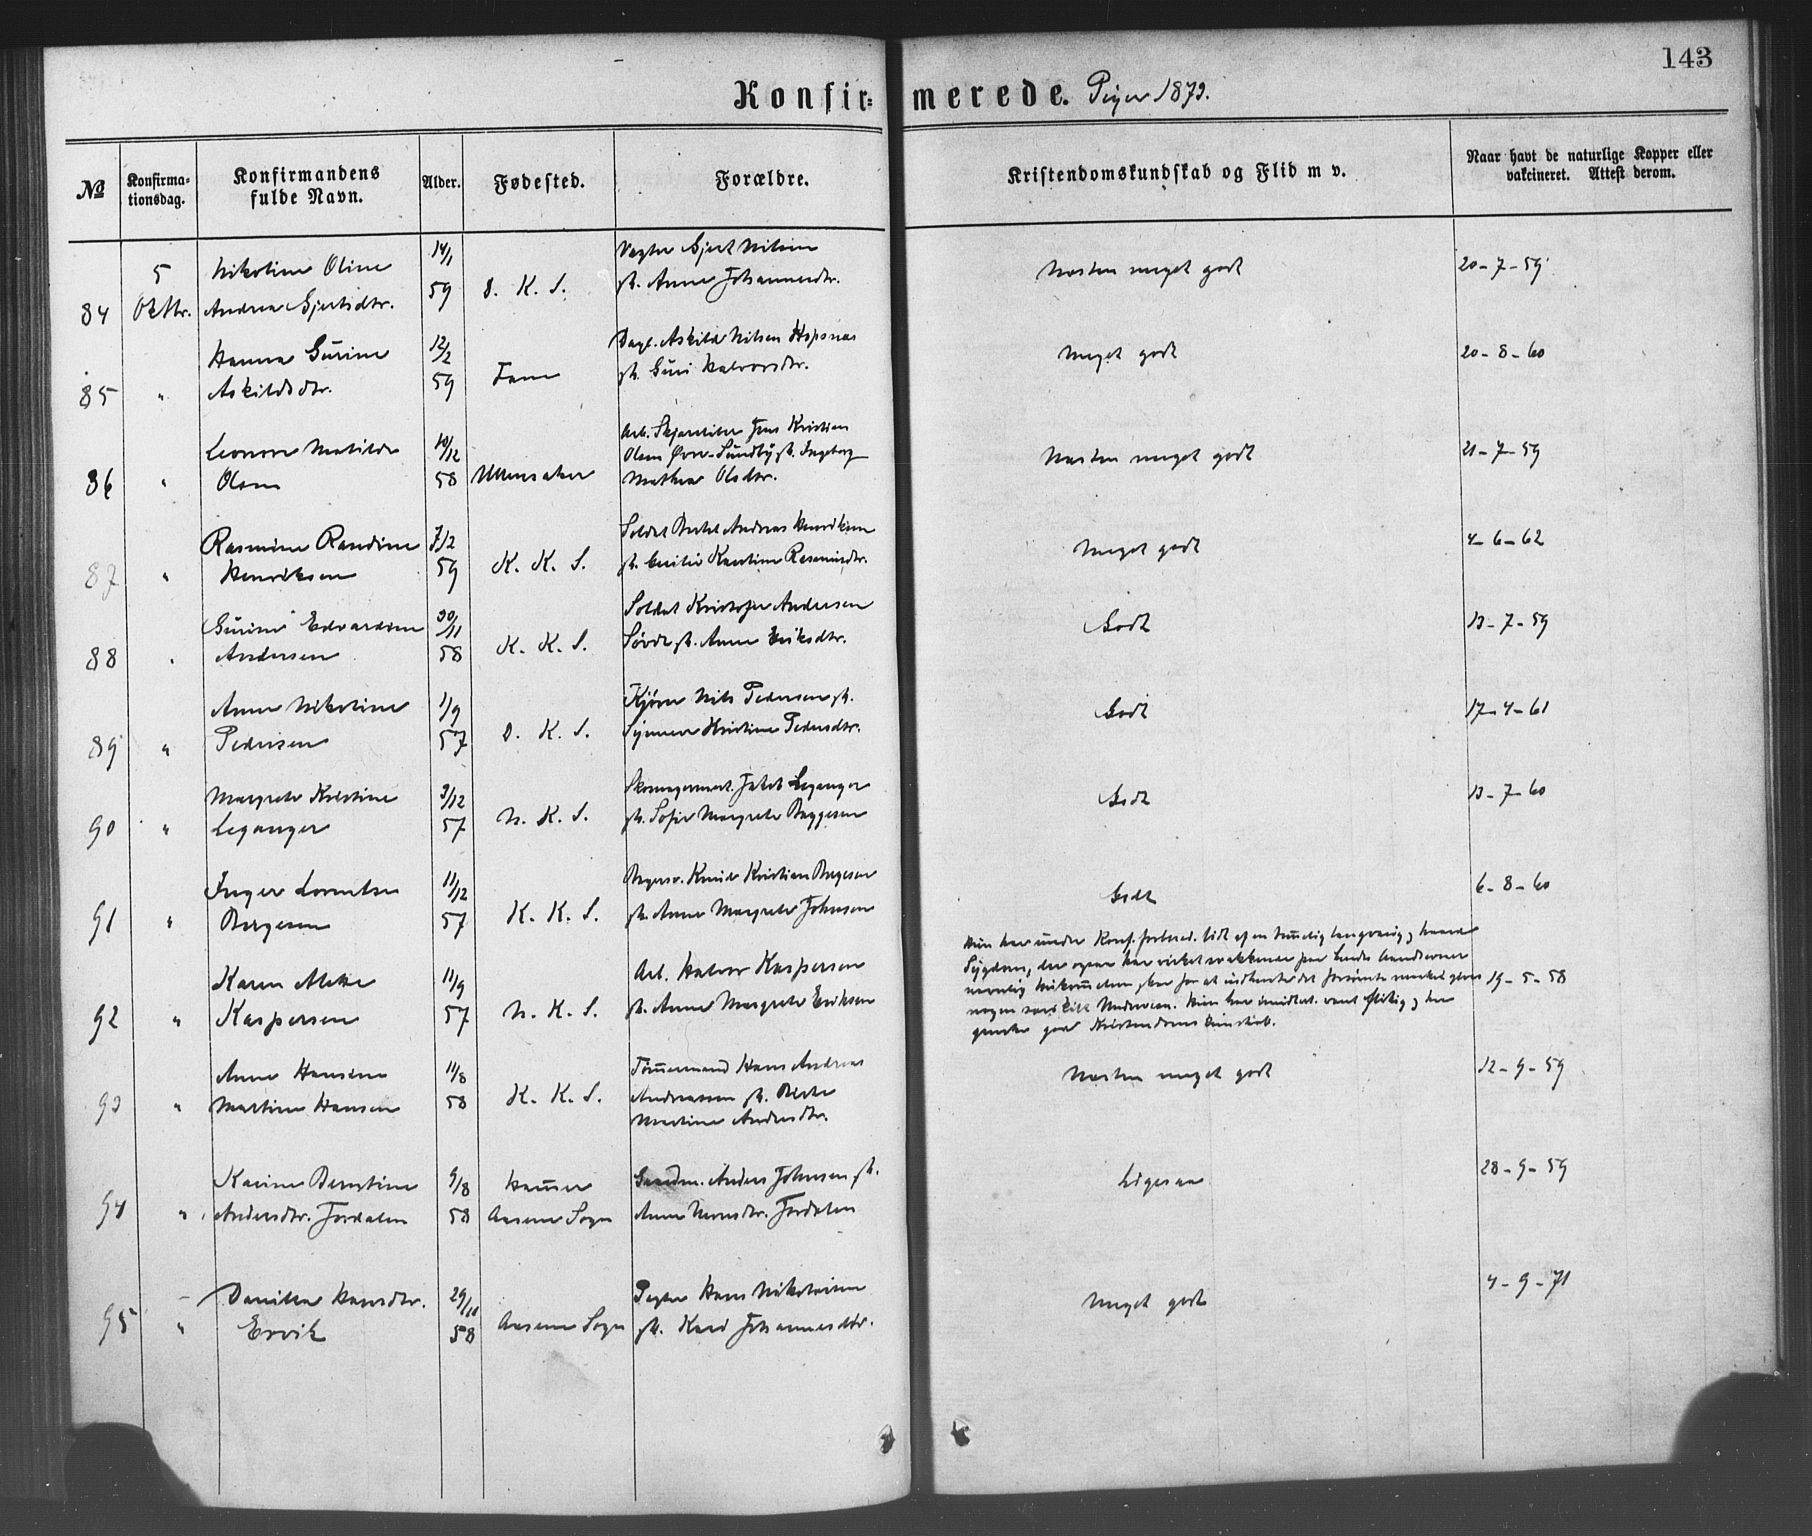 143
Konfirmerede. Piger 1873.
№
Konfirma-
tionsdag.
Konfirmandens
fulde Navn.
Alder.
Fødested.
Forældre.
Kristendomskundskab og Flid m v.
Naar havt de naturlige Kopper eller
vakcineret. Attest derom.
84
5
Oktbr.
Nikoline Oline
Andrea Gjertsdtr.
14/1
59
D. K. S.
Vægter Gjert Nilsen
& Anne Johannesdtr.
Næsten meget godt
20-7-59
85
"
Hanna Gurine
Askildsdtr.
12/2
59
Fane
Dagl. Askild Nilsen Hopsnæs
& Guri Halvorsdtr.
Meget godt
20-8-60
86
"
Leonore Matilde
Olsen
10/12
58
Ullensaker
Arb. Jens Kristian
Olsen Øvre-Sundby & Ingeborg
Mathea Olsdtr.
Næsten meget godt
21-7-59
87
"
Rasmine Randine
Henriksen
7/2
59
K. K. S.
Soldat Bertel Andreas Henriksen
& Cecilie Karoline Rasmusdtr.
Meget godt
4-6-62
88
"
Gurine Edvardine
Andersen
30/11
58
K. K. S.
Soldat Kristofer Andersen
& Anne Eriksdtr.
Godt
13-7-59
89
"
Anne Nikoline
Pedersen
1/9
57
D. K. S.
Kjører Nils Pedersen &
Synneve Kristine Pedersdtr.
Godt
17-4-61
90
"
Margrete Kristine
Leganger
3/12
57
N. K. S.
Skomagermest. Jakob Leganger
& Sofie Margrete Baggesen
Godt
13-7-60
91
"
Inger Lorentse
Børgesen
11/12
57
K. K. S.
Knud Kristian Børgesen
& Anne Margrete Johnsen
Godt
6-8-60
92
"
Karen Alette
Kaspersen
11/9
57
N. K. S.
Arb. Halvor Kaspersen
& Anne Margrete Eriksen
Hun har under Konf. forbered. lidt af en langvarig, haard
Sygdom, der ogsaa har virket svækkende paa hendes Aandsevner
for at indhente det forsømte
nogen særskilt Undervisn. Hun har imidlert. været flittig, har
ganske god Kristendomskundskab.
19-5-58
93
"
Anne Hansine
Martine Hansen
11/8
58
K. K. S.
Tømmermand Hans Andreas
Andreassen & Berte
Martine Andersdtr.
Næsten meget godt
12-9-59
94
"
Karine Berntine
Andersdtr. Fordalen
9/8
58
Hammer
Aasene Sogn
Gaardm. Anders Johnsen &
Anne Monsdtr. Fordalen
Ligesaa
28-9-59
95
"
Danilla Hansdtr.
Ervik
29/10
58
Aasene Sogn
Hans Nikolaisen
& Kari Johannesdtr.
Meget godt
4-9-71